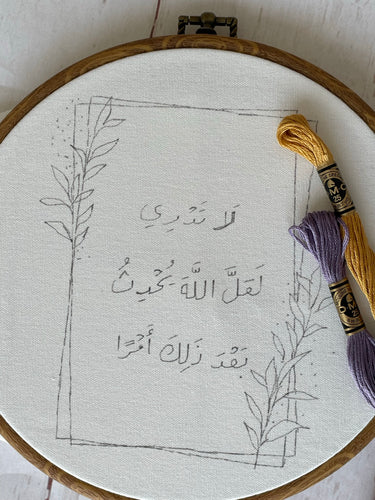 لَا تَدْرِي
لَعَلَّ اللَّهَ يُحْدِثُ
بَعْدَ ذَلِكَ أَمْرًا
DMC
25
DMC
25